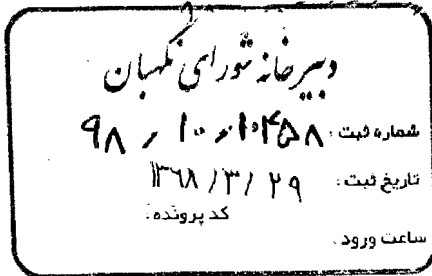 دبیرخانه شورای نگهبان
شماره ثبت:
تاریخ ثبت: ۱۳۶۸/۳/۲۹
کد پرونده:
ساعت ورود: